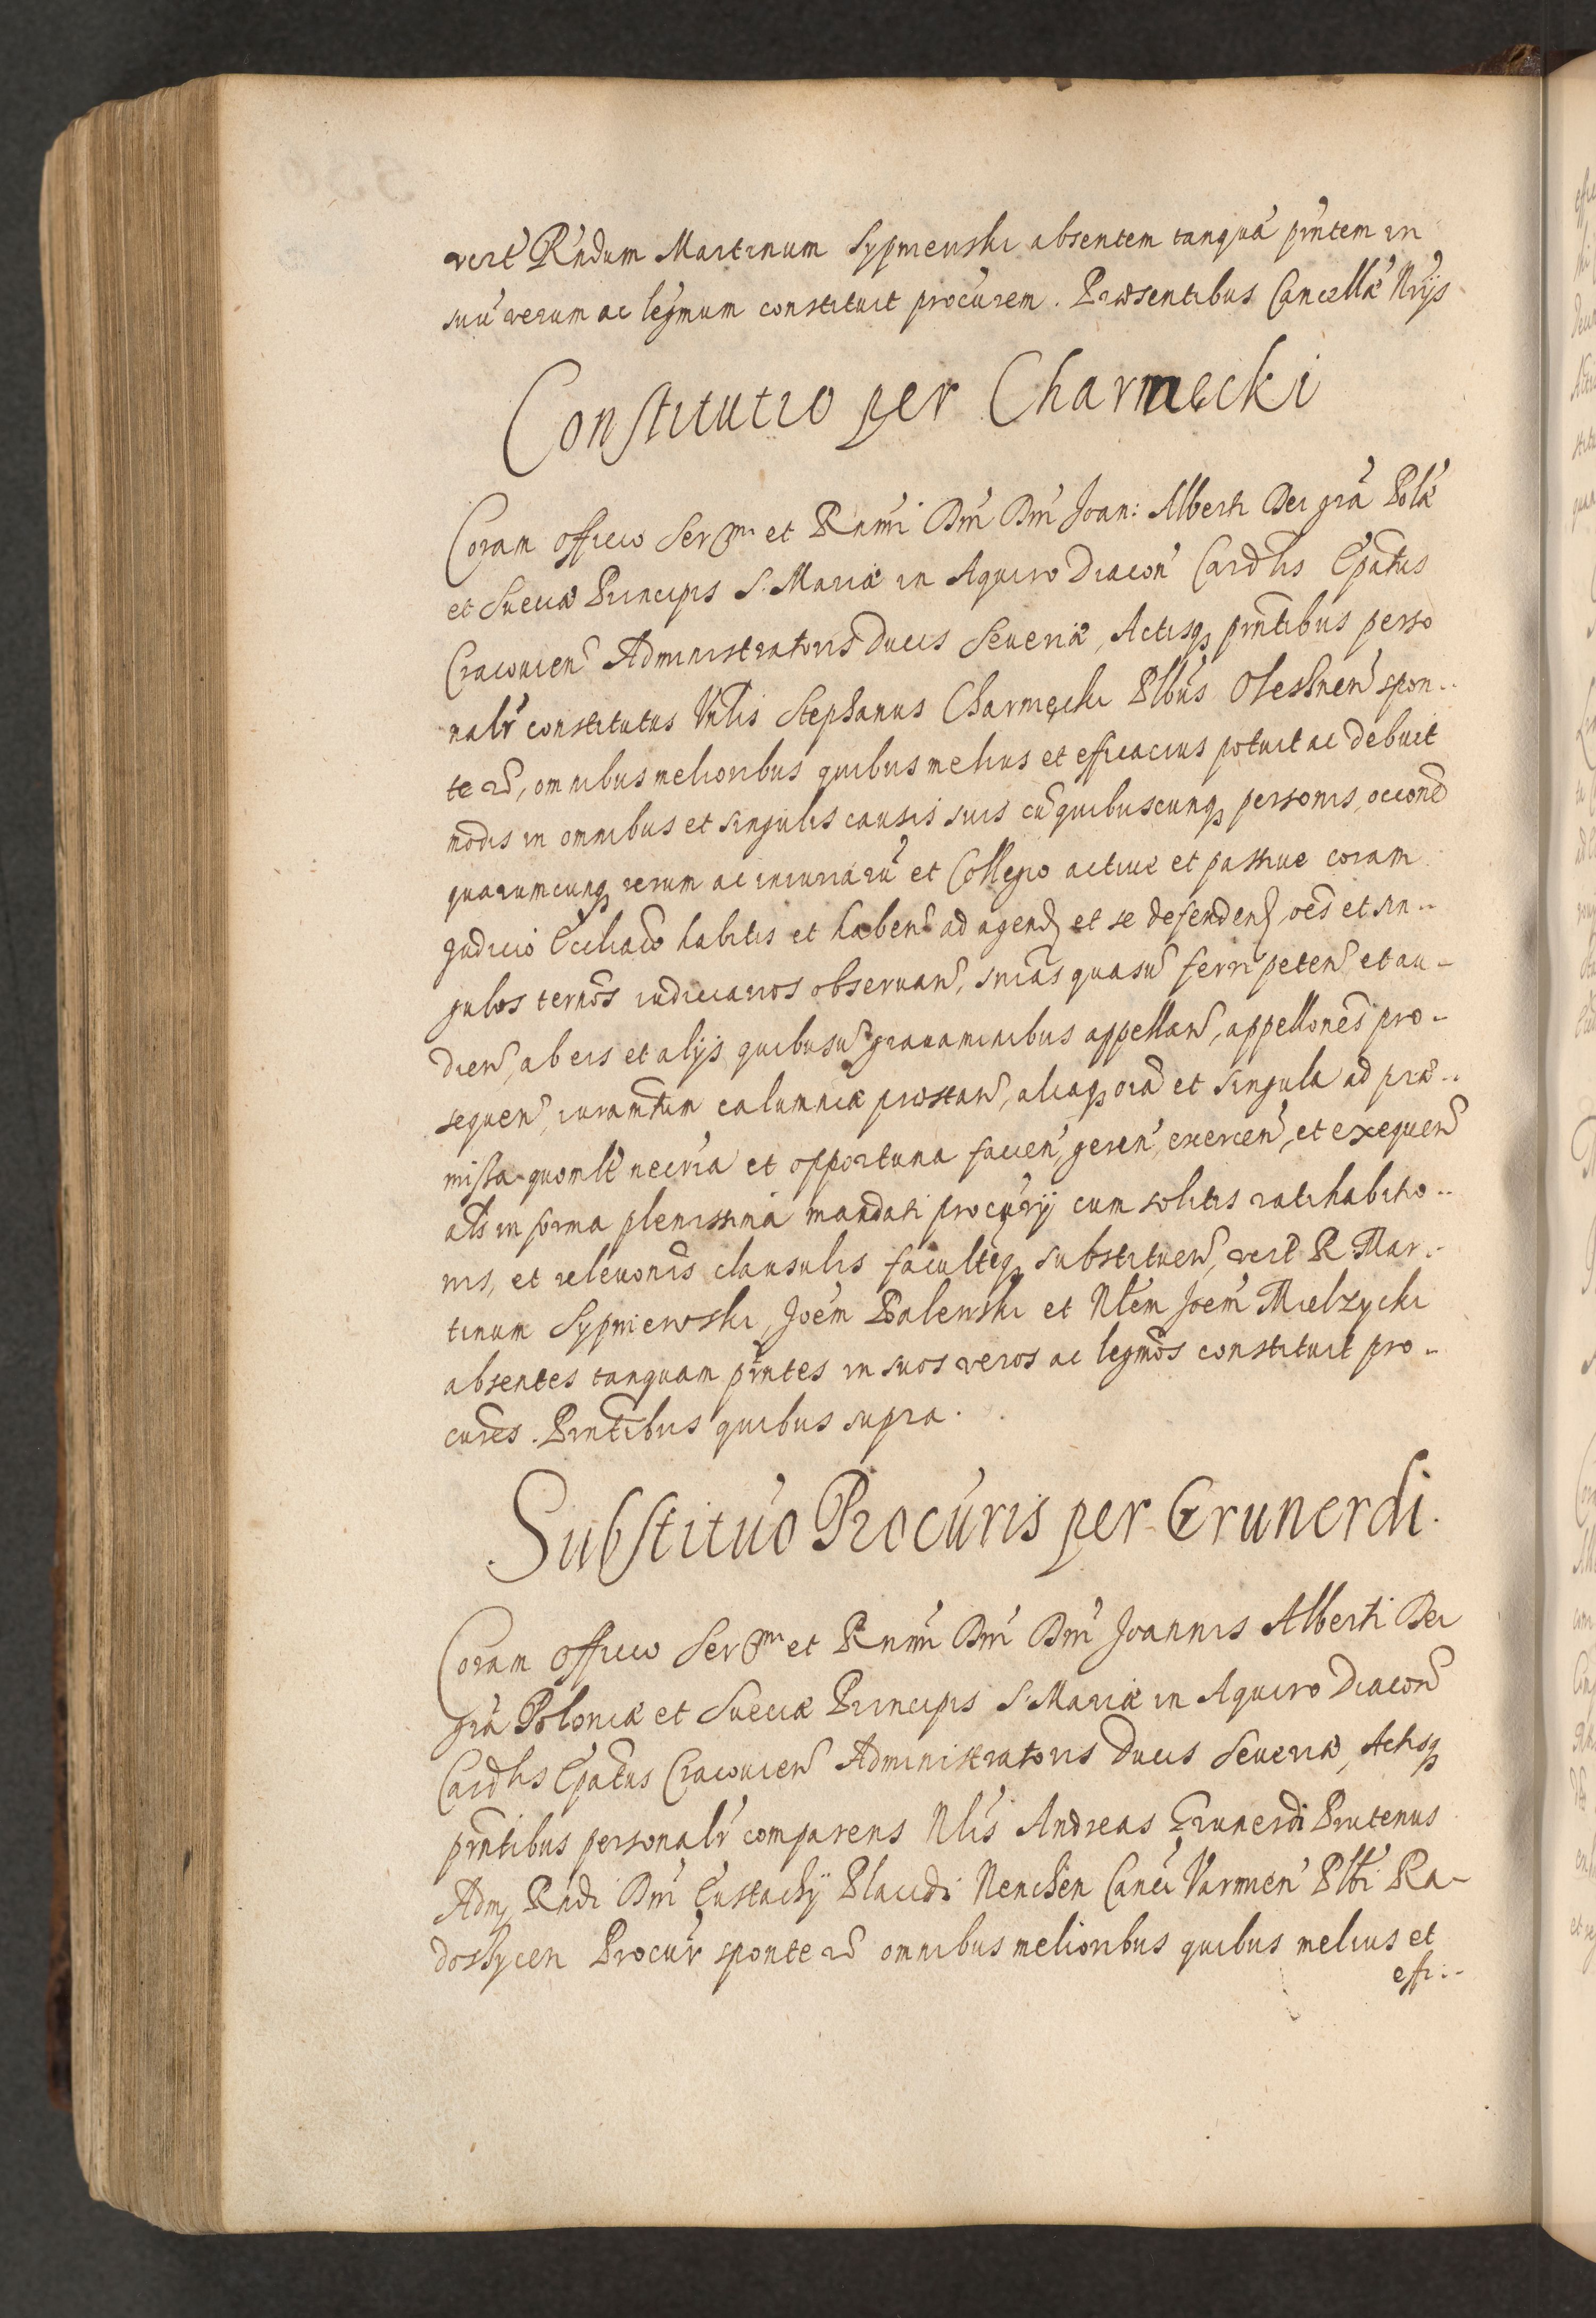 verit Rndum Martinum Sypnieuski absentem tanqua pntem in
suu verum ac legmum constituit procurem. Præsentibus Cancellæ Nrijs
Constitutio per Charmęcki
Coram officio Sermi et Rnmi Dni Dni Joan: Alberti Dei gra Polæ
et Sueciæ Principis S. Mariæ in Aquiro Diacon Cardlis Epatus
Cracouien Administratoris Ducis Seueriæ, Actisq pntibus perso
nalr constitutus Vnlis Stephanus Charmęcki Plbus Olessnen spon..
te etc, omnibus melioribus quibus melius et efficacius potuit ac debuit
modis in omnibus et singulis causis suis cu quibuscunq personis, occone
quarumcunq rerum ac iniuriaru et Collegio actiue et passiue coram
Judicio Eccliaco habitis et haben ad agend et se defenden, oes et sin..
gulos termos iudiciarios obseruan, snias quasu ferri peten et au-
dien, ab eis et alijs quibusu grauaminibus appellan, appellones pro-
sequen, iuramtum calumniæ præstan, aliaq oia et singula ad præ..
missa quomlt necria et opportuna facien, geren, exercen, et exequen
als in forma plenissima mandati procurij cum solitis ratihabitio..
nis, et releuonis clausulis faculteq substituen, verit R. Mar..
tinum Sypniewski, Joem Palenski et Nlem Joem Mielzycki
absentes tanquam pntes in suos veros ac legmos constituit pro..
cures. Pntibus quibus supra.
Substituo Procuris per Grunerdi.
Coram officio Sermi et Rnmi Dni Dni Joannis Alberti Dei
gra Poloniæ et Sueciæ Principis S. Mariæ in Aquiro Diacon
Cardlis Epatus Cracouien Administratoris Ducis Seueriæ, Actisq
pntibus personalr comparens Nlis Andreas Grunerdi Prutenus
Adm Rndi Dni Eustachij Placidi Nenchen Canci Varmien Plbi Ra-
dossycen Procur sponte etc omnibus melioribus quibus melius et
effi..